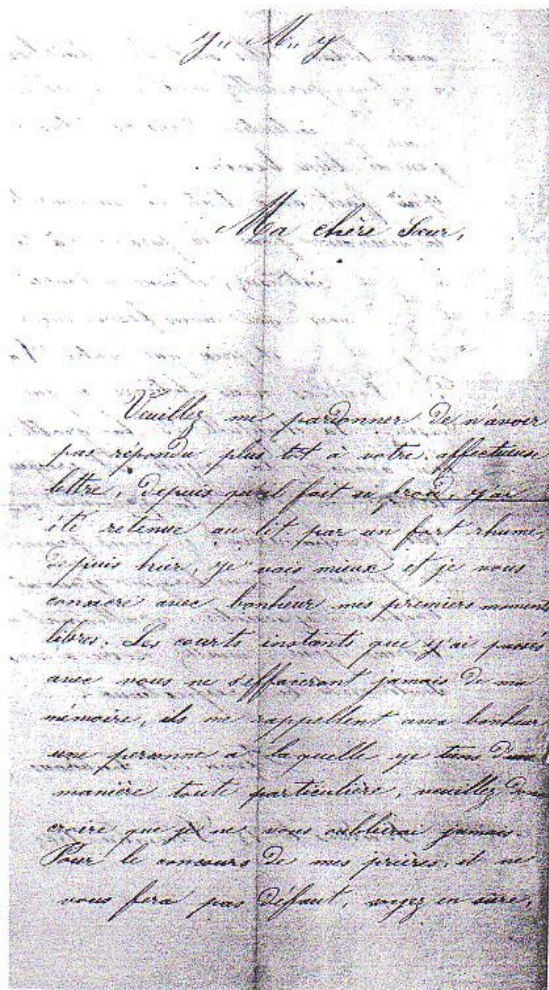 J,, M,, J
Ma chère Sœur,
Veuillez me pardonner de n'avoir
pas répondu plus tôt à votre affectueuse
lettre, depuis qu'il fait si froid, j'ai
été retenue au lit par un fort rhume,
depuis hier, je vais mieux et je vous
consacre avec bonheur mes premiers moments
libres. Les courts instants que j'ai passés
avec vous ne s'effaceront jamais de ma
mémoire, ils me rappellent avec bonheur
une personne à laquelle je tiens d'une
manière toute particulière, veuillez donc
croire que je ne vous oublierai jamais.
Pour le concours de mes prières, il ne
vous fera pas défaut, soyez en sûre,